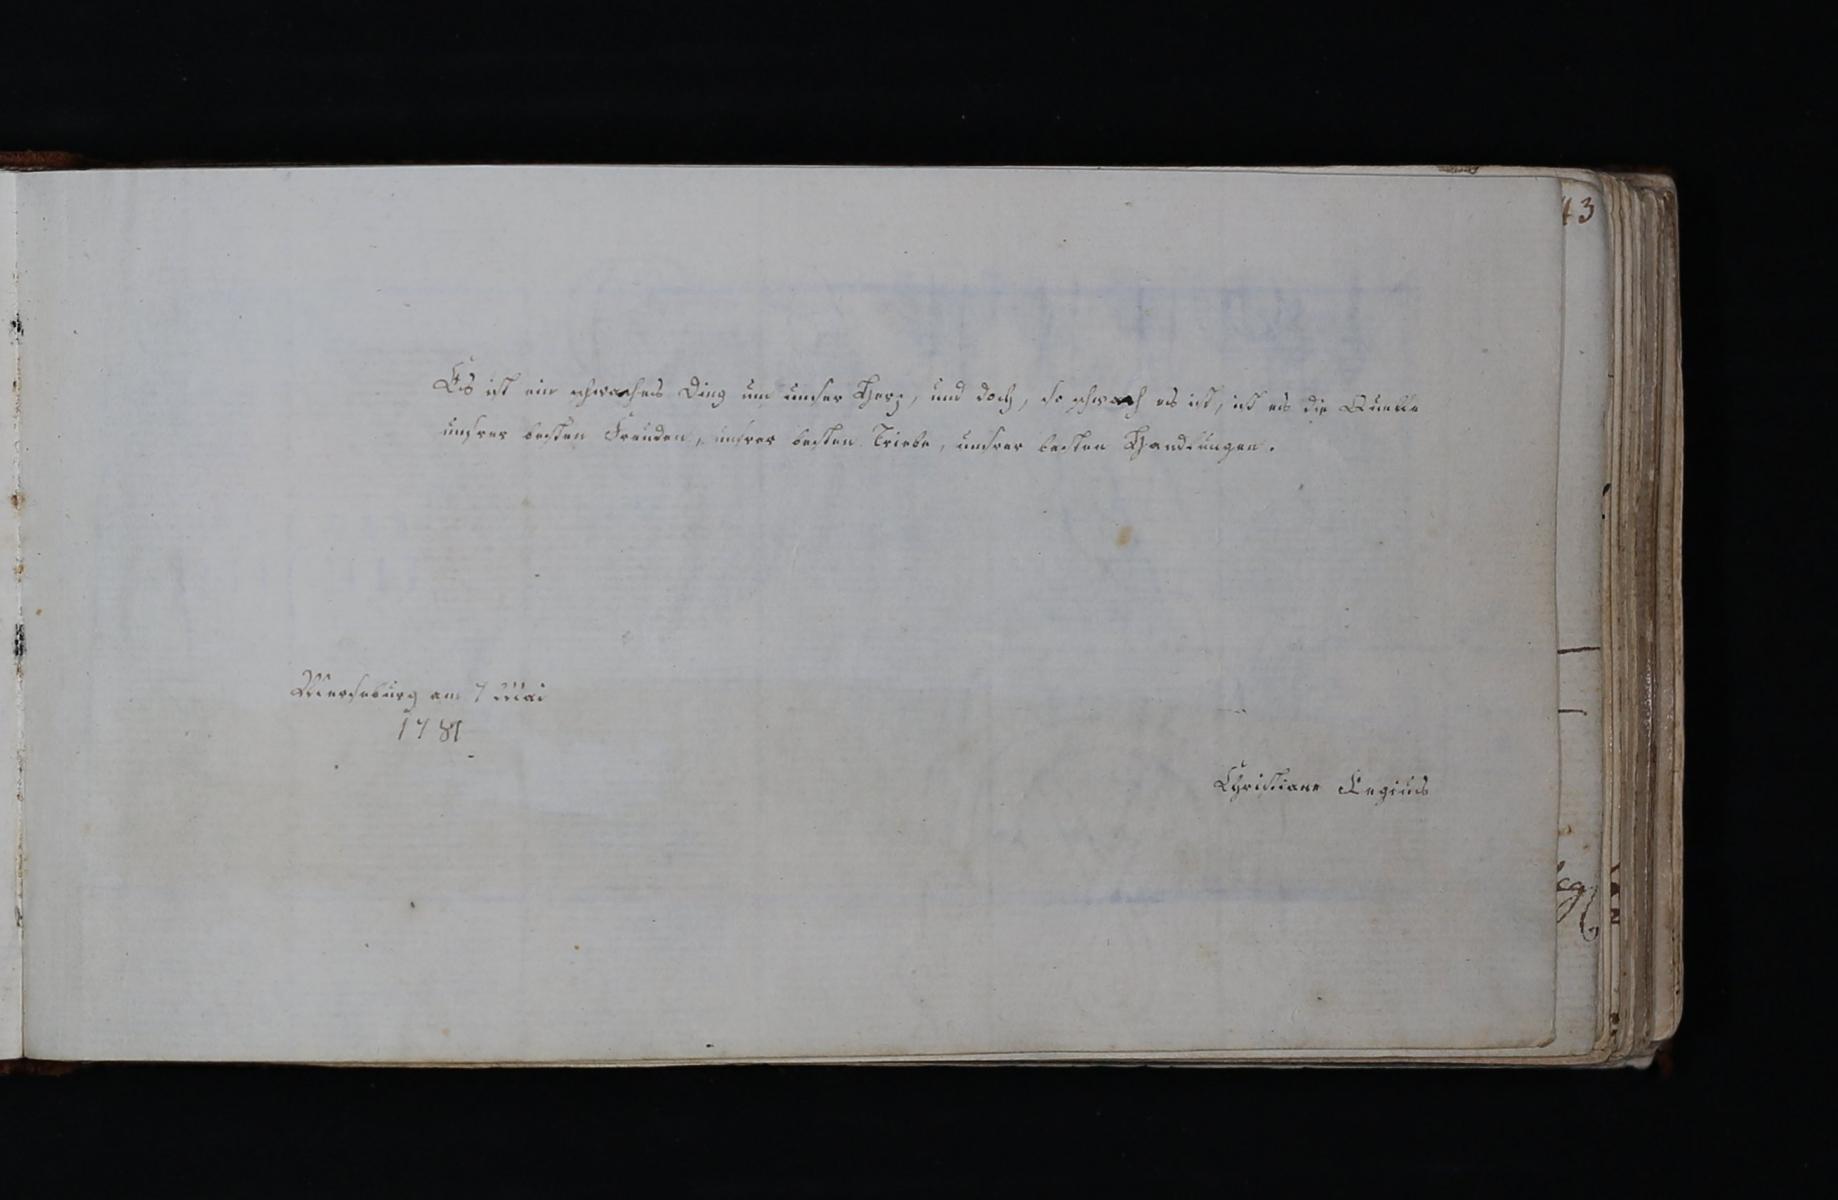 43
Es ist ein schwaches Ding um unser Herz, und doch, so schwach es ist, ist es die Quelle
unsrer besten Freuden, unsrer besten Triebe, unsrer besten Handlungen.
Merseburg am 7 Mai
1781
Christiane